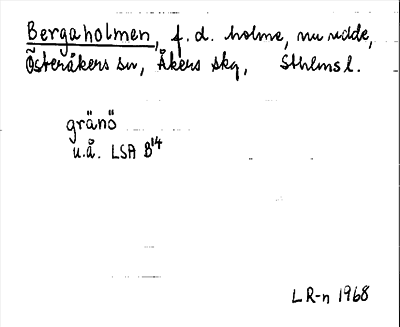 Bergaholmen, f. d. holme, nu udde,
Österåkers sn, Åkers skg, Sthlms l.
gränö
u.å. LSA B14
LR-n 1968